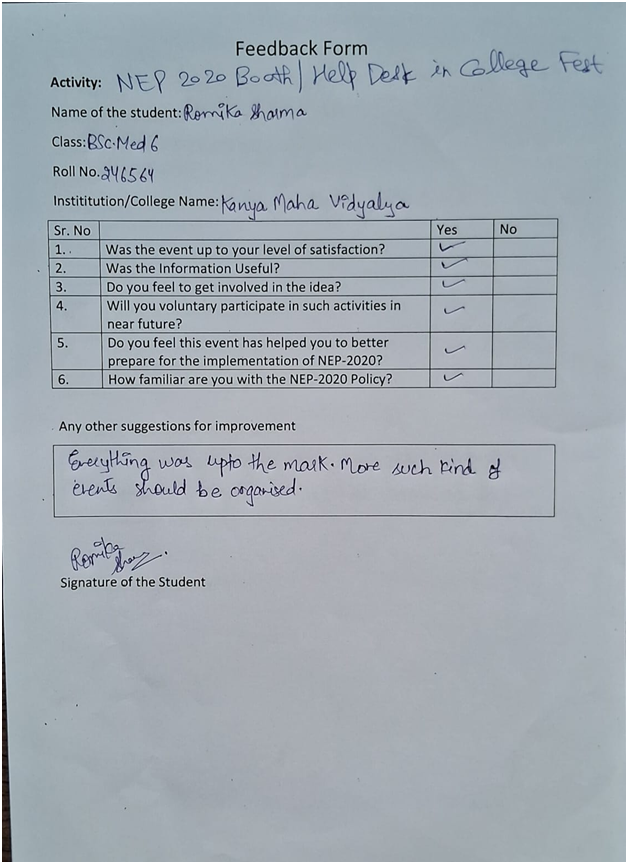 Feedback Form
Activity: NEP 2020 Booth/Help Desk in College Fest
Name of the student: Romika Sharma
Class: BSc.Med 6
Roll No. 246564
Instititution/College Name: Kanya Maha Vidyalya
Sr. No Yes No
1.. Was the event up to your level of satisfaction? ✓
2. Was the Information Useful? ✓
3. Do you feel to get involved in the idea? ✓
4. Will you voluntary participate in such activities in
near future? ✓
5. Do you feel this event has helped you to better
prepare for the implementation of NEP-2020? ✓
6. How familiar are you with the NEP-2020 Policy? ✓
Any other suggestions for improvement
Everything was upto the mark. More such kind of
events should be organised.
Romika
Sharma
Signature of the Student